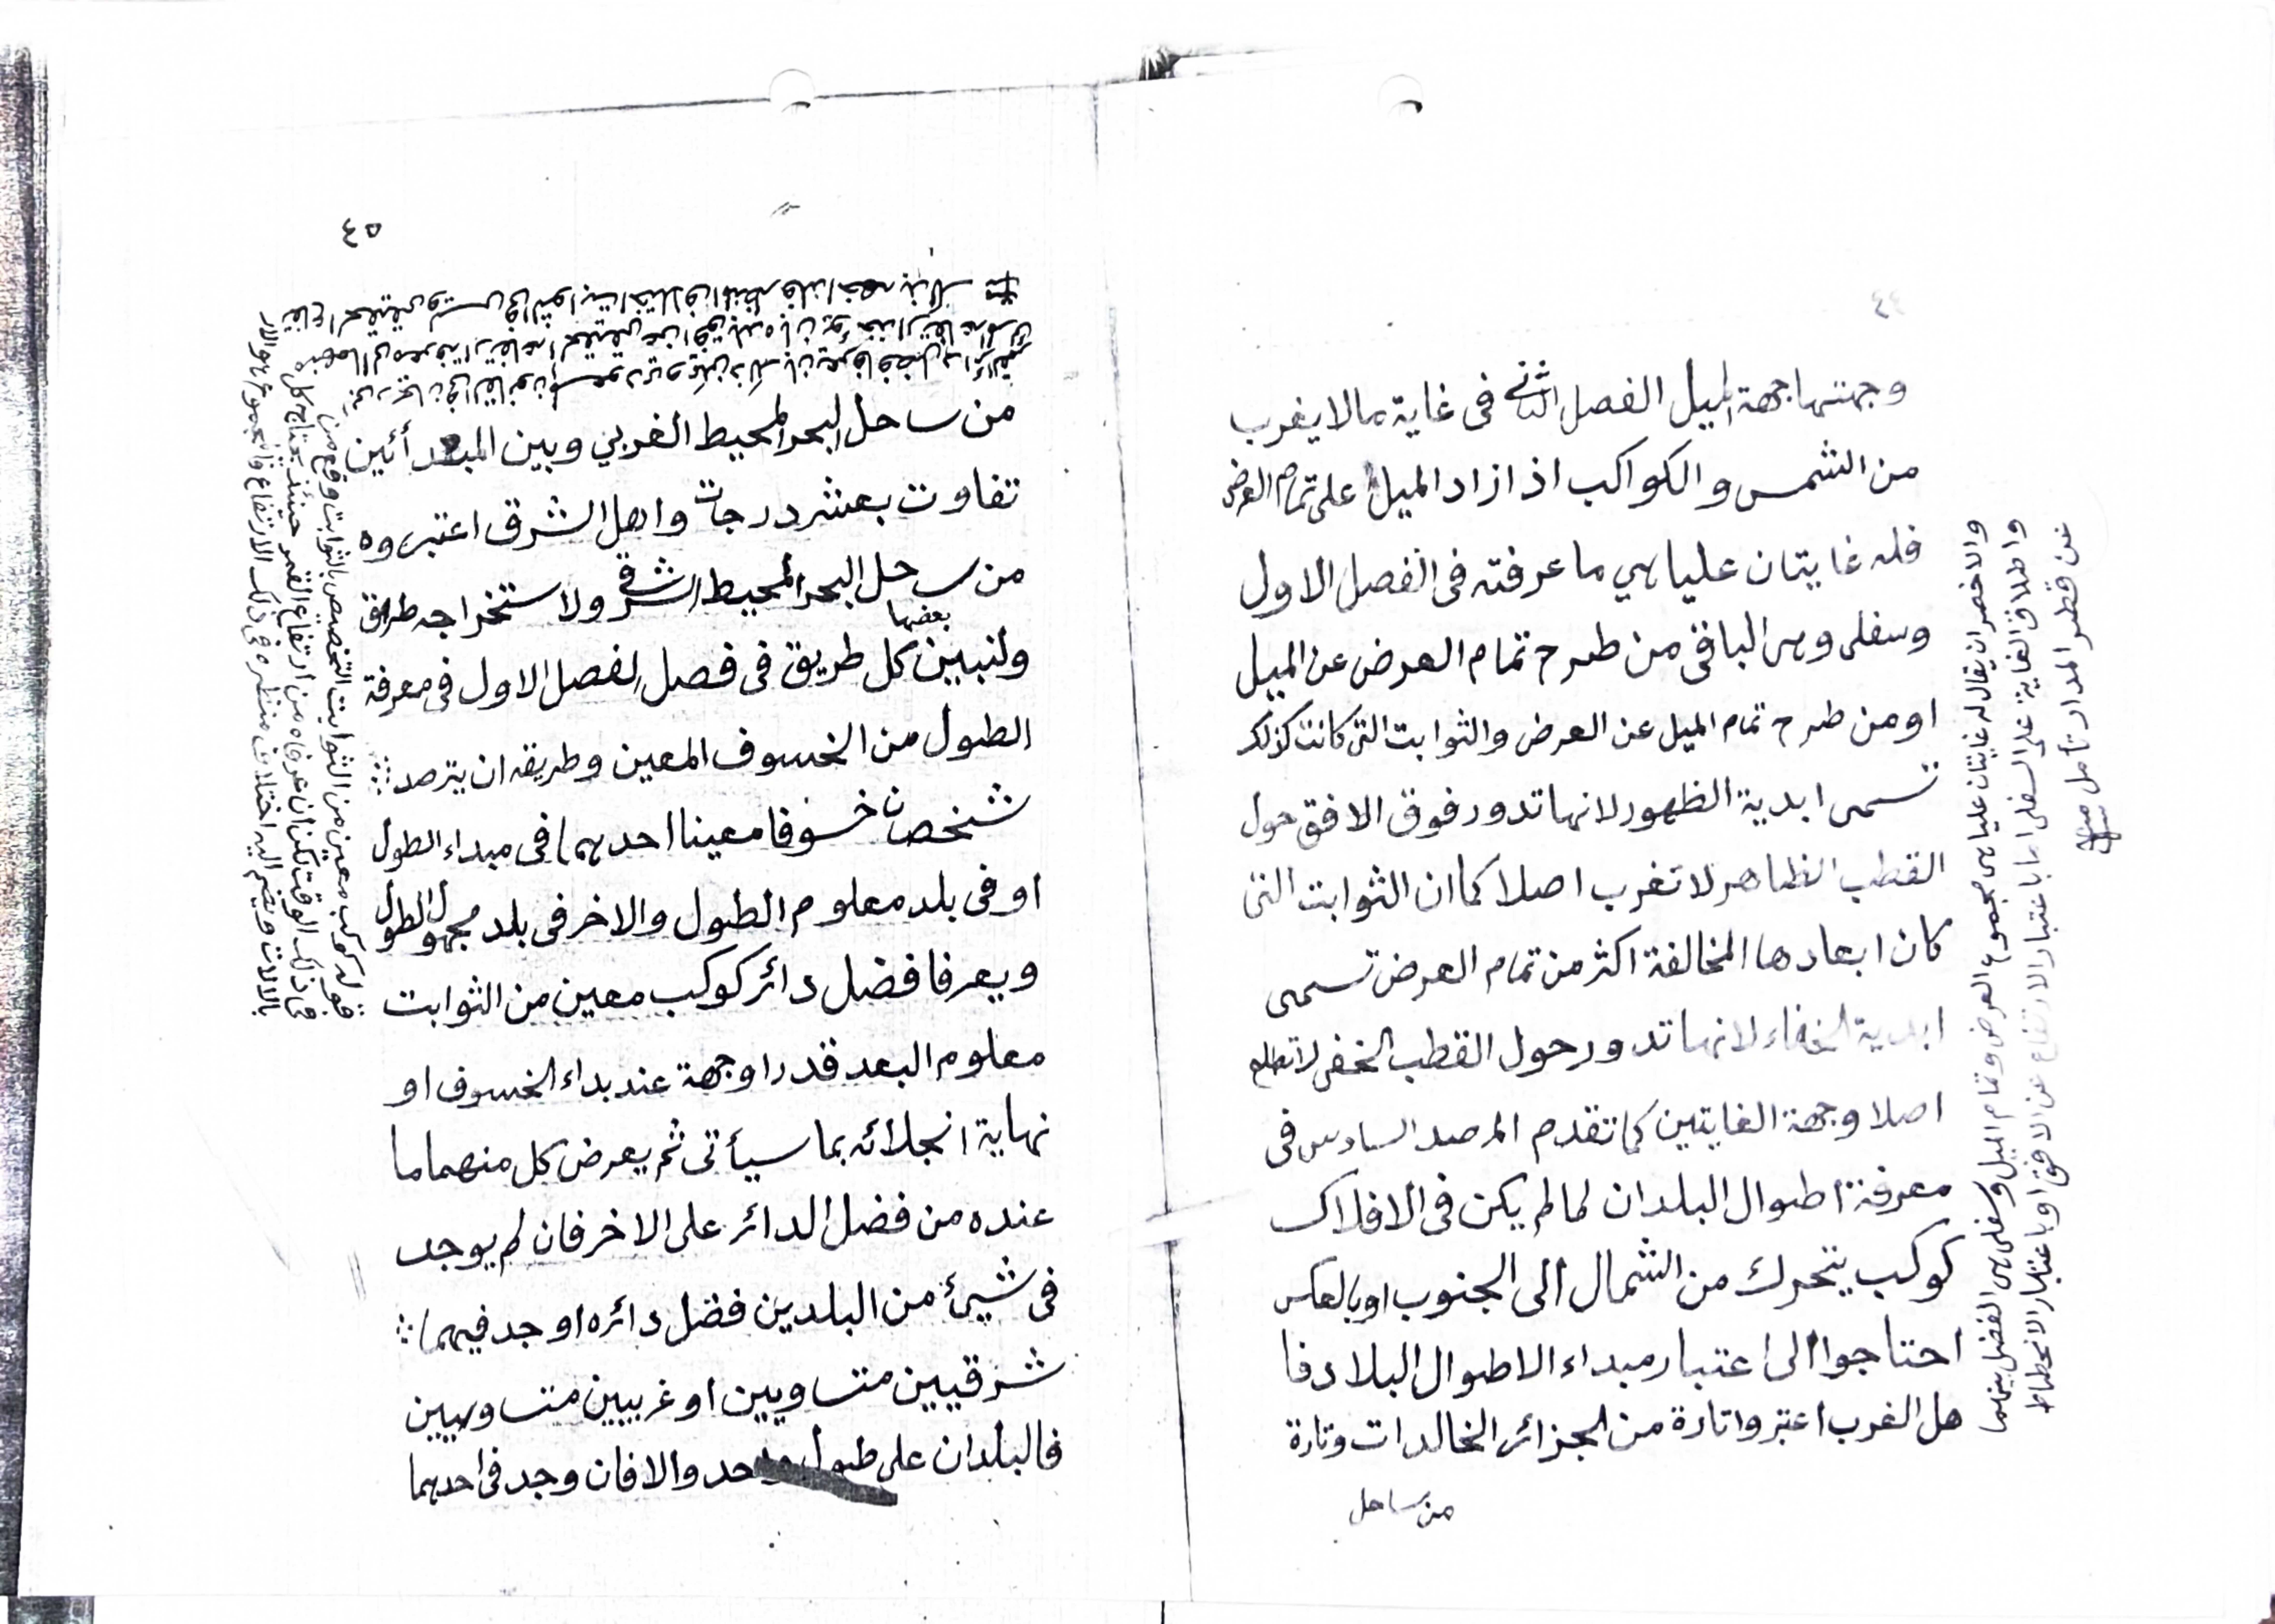 ٤٤
وجهتها جهة الميل الفصل الثاني فى غاية مالا يغرب
من الشمس والكواكب اذا زاد الميل على تمام العرض
فله غايتان عليا هي ما عرفته فى الفصل الاول
وسفلى وهى الباقى من طرح تمام العرض عن الميل
او من طرح تمام الميل عن العرض والثوابت التى كانت كذلك
تسمى ابدية الظهور لانها تدور فوق الافق حول
القطب الظاهر لا تغرب اصلا كما ان الثوابت التى
كان ابعادها المخالفة اكثر من تمام العرض تسمى
ابدية الخفاء لانها تدور حول القطب الخفى لا تطلع
اصلا وجهة الغايتين كما تقدم المرصد السادس فى
معرفة اطوال البلدان لما لم يكن فى الافلاك
كوكب يتحرك من الشمال الى الجنوب او بالعكس
احتاجوا الى اعتبار مبداء الاطوال البلاد فا
هل الغرب اعتبروا تارة من الجزائر الخالدات وتارة
من ساحل
والاخصر ان يقال له غايتان عليا هى مجموع العرض وتمام الميل وسفلى هى الفضل بينهما
واطلاق الغاية على السفلى اما باعتبار الارتفاع عن الافق او باعتبار الانحطاط
عن قطر المدار تأمل منه
٤٥
من ساحل البحر المحيط الغربي وبين المبدأئين
تفاوت بعشر درجات واهل الشرق اعتبروه
من ساحل البحر المحيط الشرقى ولاستخراجه طرائق
بعضها
ولنبين كل طريق فى فصل الفصل الاول فى معرفة
الطول من الخسوف المعين وطريقه ان يترصد
شخصان خسوفا معينا احدهما فى مبداء الطول
او فى بلد معلوم الطول والاخر فى بلد مجهول الطول
ويعرفا فضل دائر كوكب معين من الثوابت
معلوم البعد قدرا وجهة عند بداء الخسوف او
نهاية انجلائه بما سيأتى ثم يعرض كل منهما ما
عنده من فضل الدائر على الاخر فان لم يوجد
فى شيئ من البلدين فضل دائره او جد فيهما
شرقيين متساويين او غربيين متساويين
فالبلدان على طول واحد والا فان وجد فى احدهما
قوله كوكب معين من الثوابت التخصيص بالثوابت وقع من
فى ذلك الوقت يمكن ان عرفاه من ارتفاع القمر حينئذ يحتاج كل
بالالات ويضم اليه اختلاف منظره فى ذلك الارتفاع والمجموع هو الار